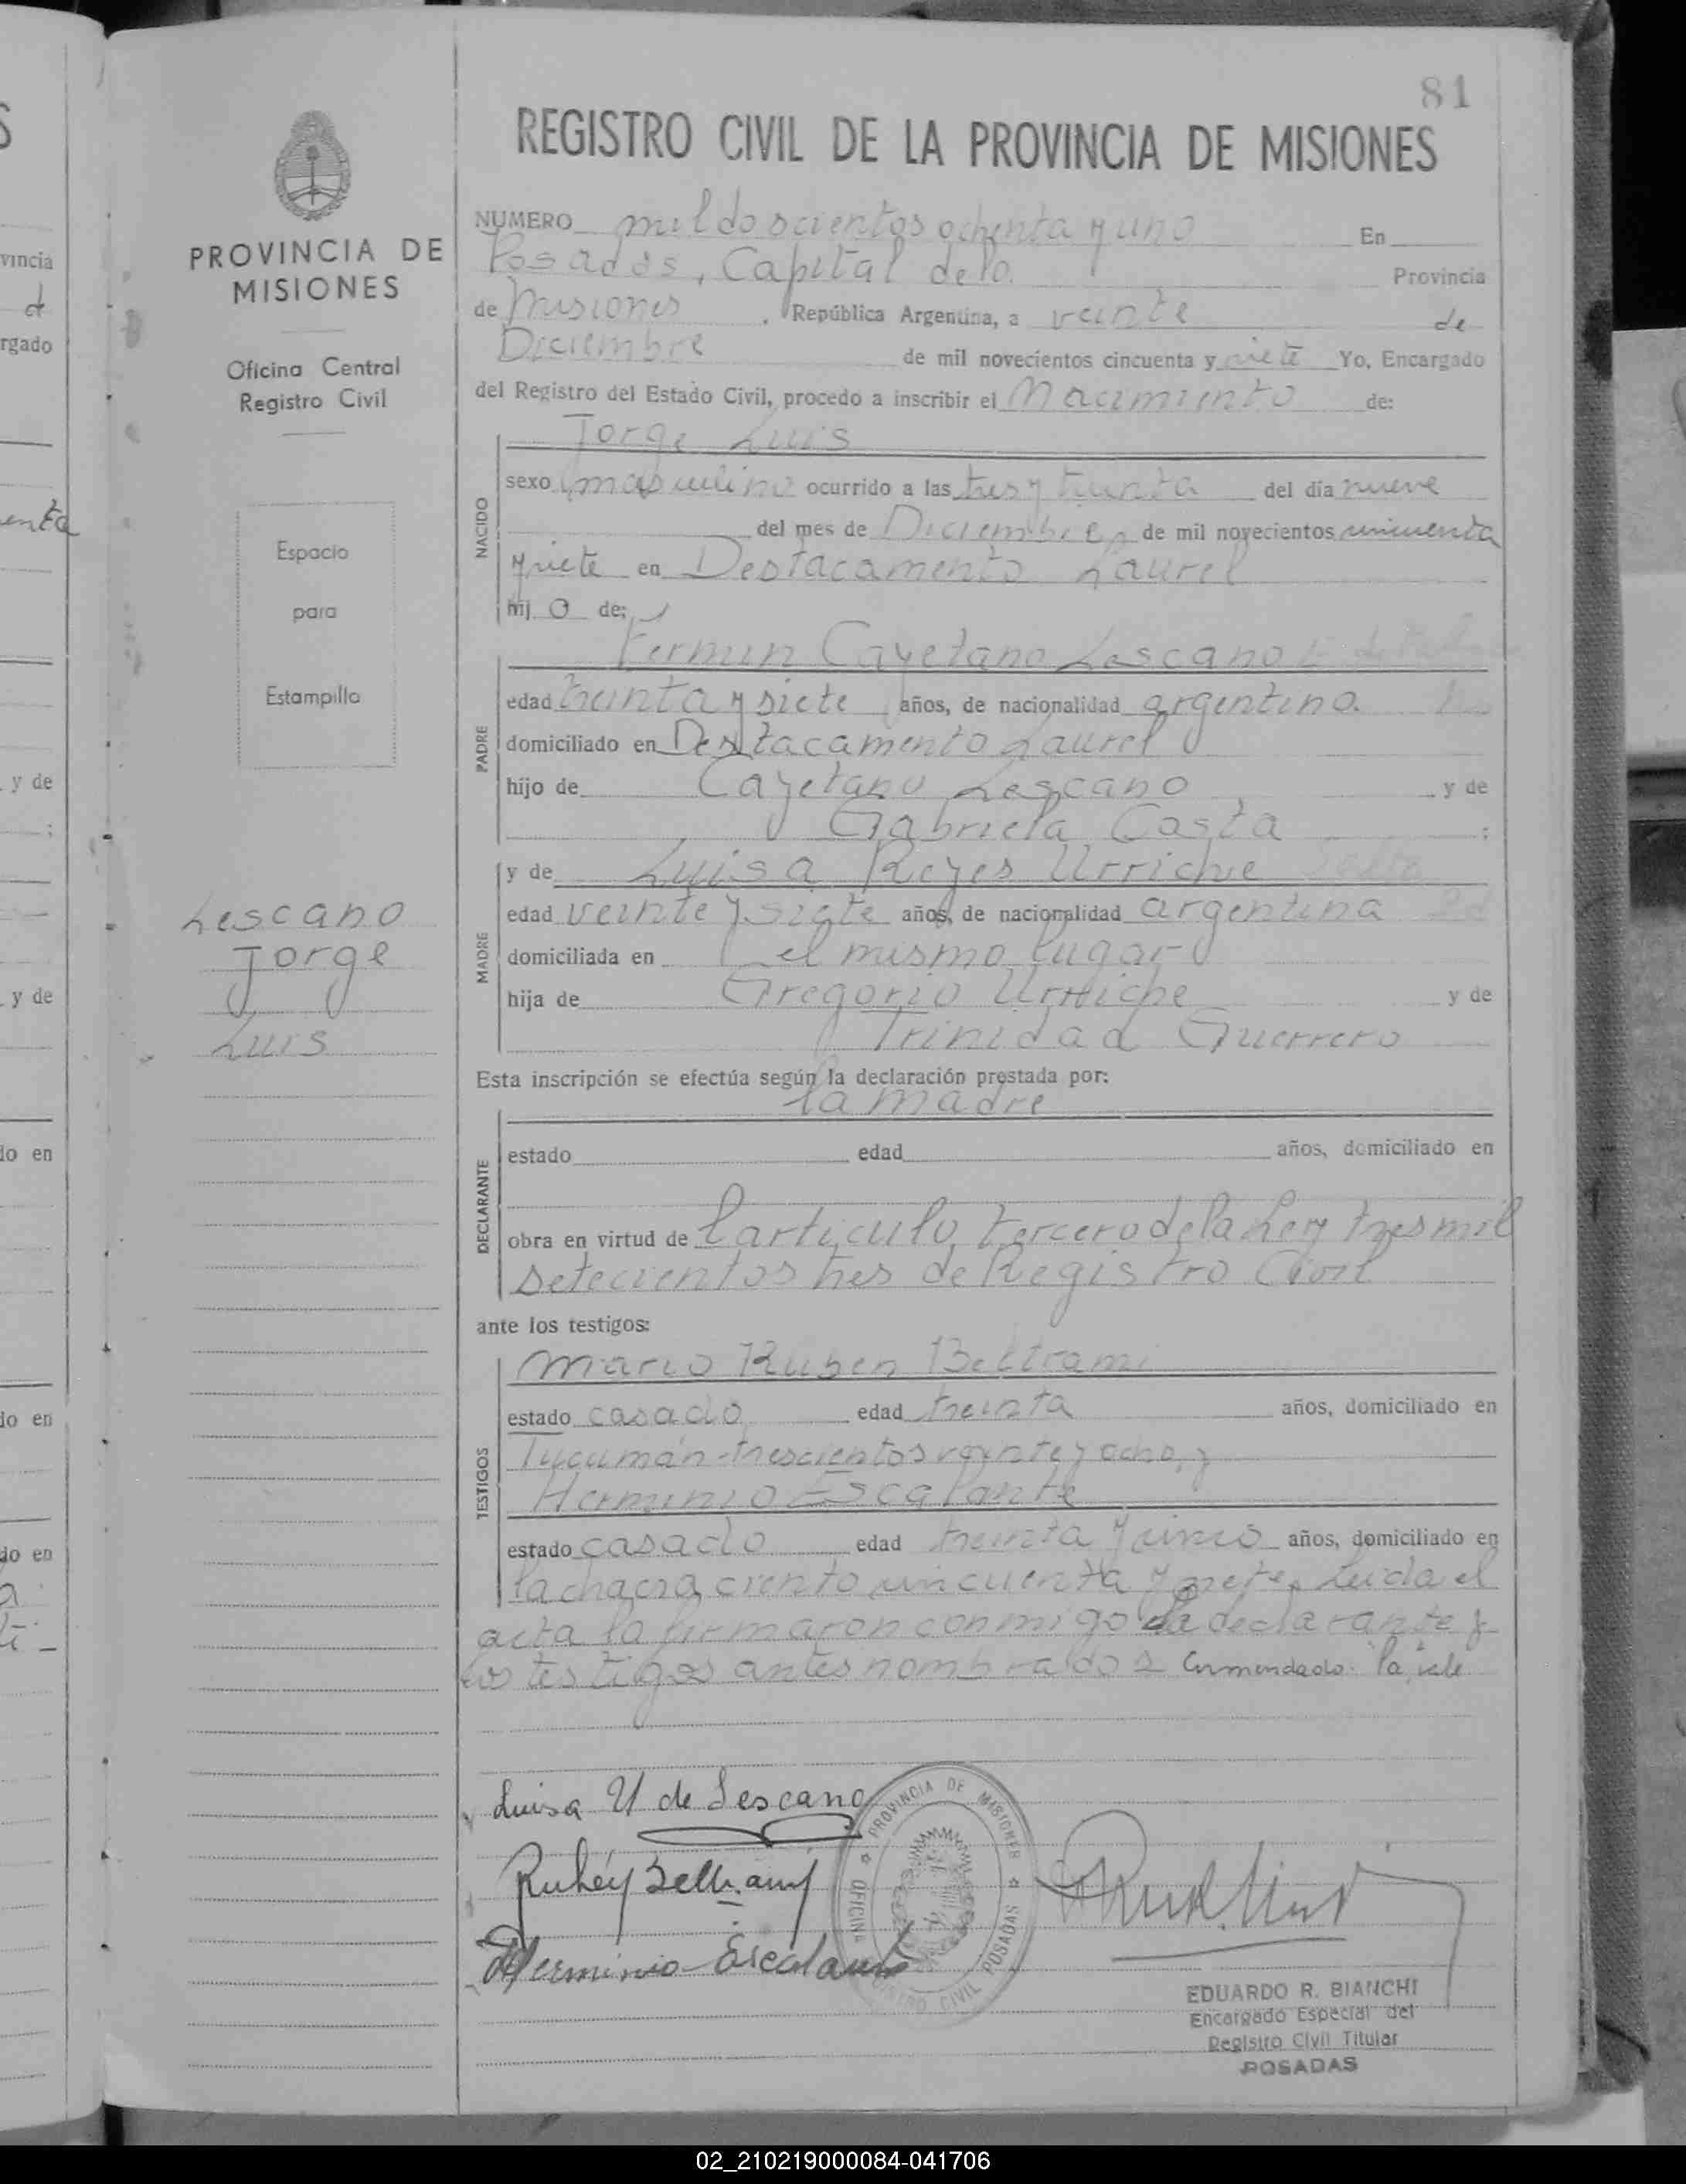 81
REGISTRO CIVIL DE LA PROVINCIA DE MISIONES
PROVINCIA DE
MISIONES
Oficina Central
Registro Civil
Espacio
para
Estampilla
Lescano
Jorge
Luis
NUMERO mil doscientos ochenta y uno En
Posadas, Capital de la Provincia
de Misiones, República Argentina, a veinte de
Diciembre de mil novecientos cincuenta y siete Yo, Encargado
del Registro del Estado Civil, procedo a inscribir el Nacimiento de:
Jorge Luis
NACIDO
sexo masculino ocurrido a las tres y treinta del día nueve
del mes de Diciembre de mil novecientos cincuenta
y siete en Destacamento Laurel
hijo de:
Fermin Cayetano Lescano
PADRE
edad treinta y siete años, de nacionalidad argentino.
domiciliado en Destacamento Laurel
hijo de Cayetano Lescano y de
Gabriela Costa ;
y de Luisa Reyes Urriche
MADRE
edad veinte y siete años, de nacionalidad argentina
domiciliada en el mismo lugar
hija de Gregorio Urriche y de
Trinidad Guerrero
Esta inscripción se efectúa según la declaración prestada por:
la madre
DECLARANTE
estado edad años, domiciliado en
obra en virtud de l articulo tercero de la Ley tres mil
setecientos tres de Registro Civil
ante los testigos:
Mario Ruben Beltrami
TESTIGOS
estado casado edad treinta años, domiciliado en
Tucumán trescientos veinte y ocho, y
Herminio Escalante
estado casado edad treinta y cinco años, domiciliado en
la chacra ciento cincuenta y siete. Leida el
acta la firmaron conmigo la declarante y
los testigos antes nombrados Enmendado: "la", vale
Luisa U de Lescano
Ruben Beltrami
Herminio Escalante
PROVINCIA DE MISIONES
OFICINA
REGISTRO CIVIL POSADAS
EDUARDO R. BIANCHI
Encargado Especial del
Registro Civil Titular
POSADAS
vincia
rgado
enta
y de
y de
do en
do en
do en
02_210219000084-041706